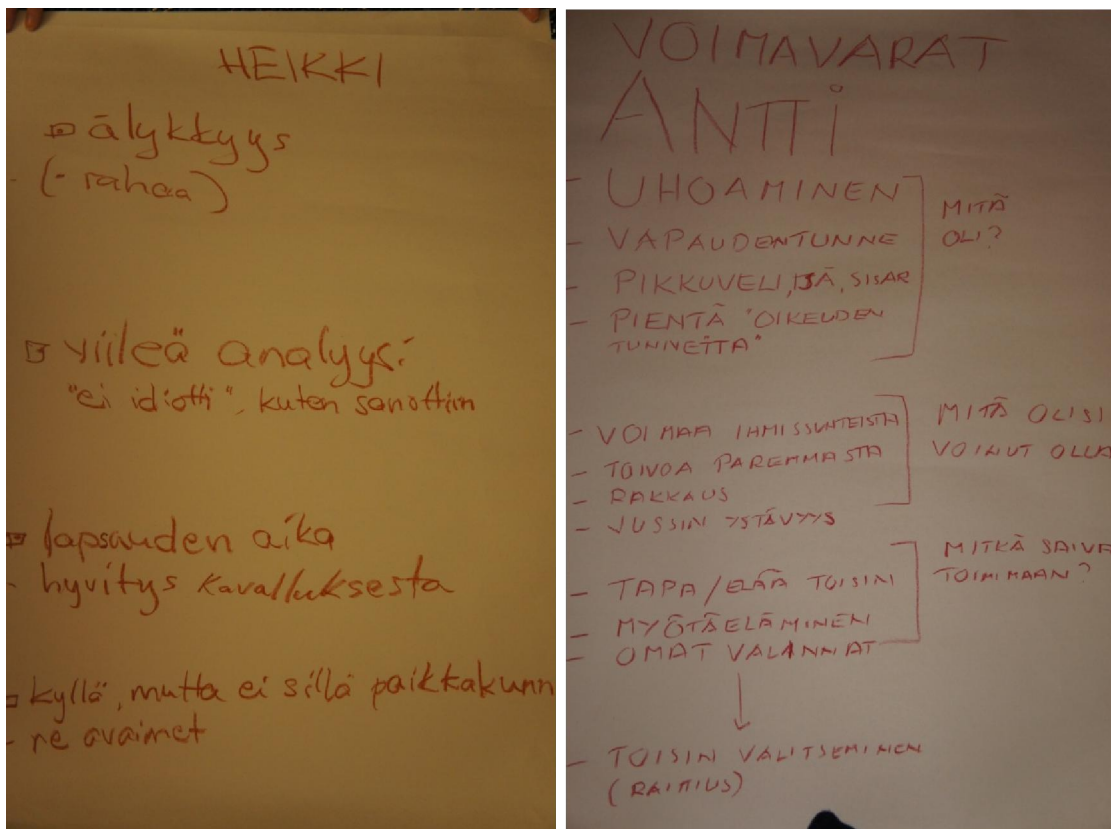 HEIKKI
älykkyys
(- rahaa)
viileä analyysi
"ei idiotti", kuten sanottiin
lapsuuden aika
- hyvitys kavalluksesta
kyllä, mutta ei sillä paikkakunn
- ne avaimet
VOIMAVARAT
ANTTI
- UHOAMINEN
- VAPAUDENTUNNE
- PIKKUVELI, ISÄ, SISAR
- PIENTÄ "OIKEUDEN
TUNNETTA"
MITÄ
OLI?
- VOIMAA IHMISSUHTEISTA
- TOIVOA PAREMMASTA
- RAKKAUS
- JUSSIN YSTÄVYYS
MITÄ OLISI
VOINUT OLLA
- TAPA/ELÄÄ TOISIN
- MYÖTÄELÄMINEN
- OMAT VALINNAT
MITKÄ SAIVA
TOIMIMAAN?
- TOISIN VALITSEMINEN
(RAITTIUS)